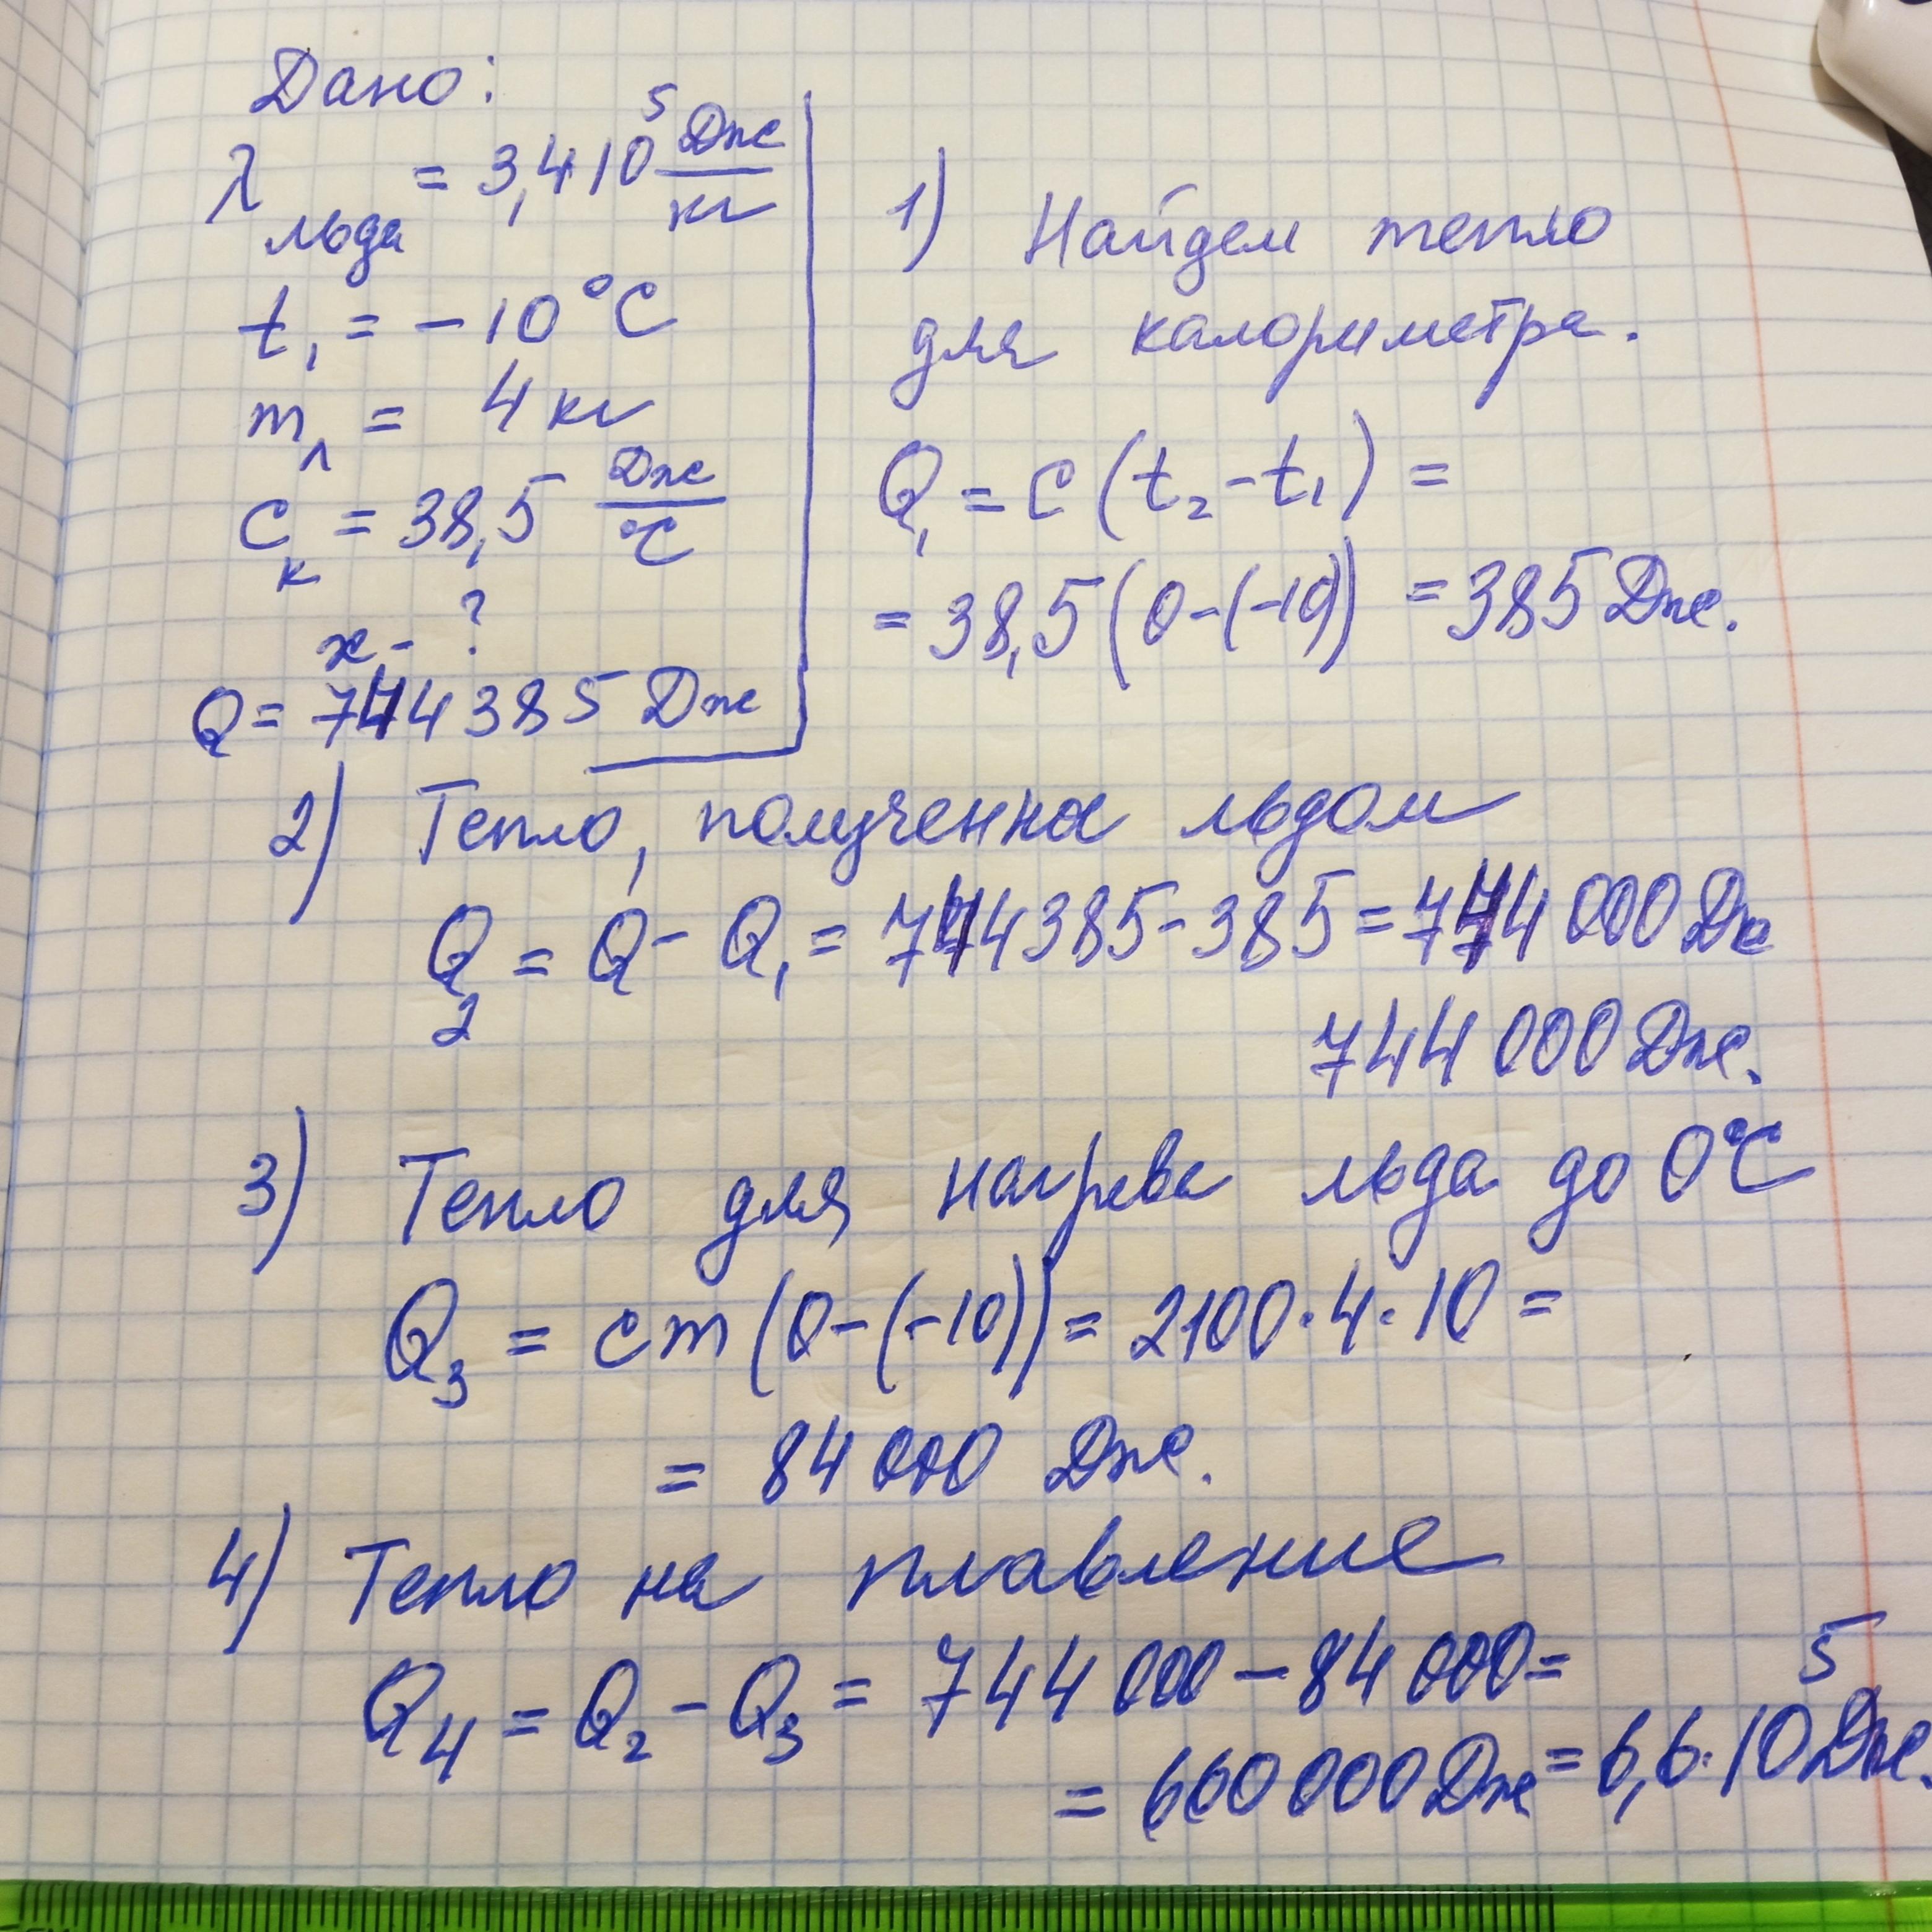 Дано:
λ льда = 3,4·10⁵ Дж/кг
t₁ = -10°C
mл = 4 кг
Cк = 38,5 Дж/°C
x - ?
Q = 744385 Дж
1) Найдем тепло
для калориметра.
Q₁ = C(t₂-t₁) =
= 38,5(0-(-10)) = 385 Дж.
2) Тепло, полученное льдом
Q₂ = Q - Q₁ = 744385-385 = 744 000 Дж
744 000 Дж.
3) Тепло для нагрева льда до 0°C
Q₃ = cm(0-(-10)) = 2100·4·10 =
= 84 000 Дж.
4) Тепло на плавление
Q₄ = Q₂ - Q₃ = 744 000 - 84 000 =
= 660 000 Дж = 6,6·10⁵ Дж.